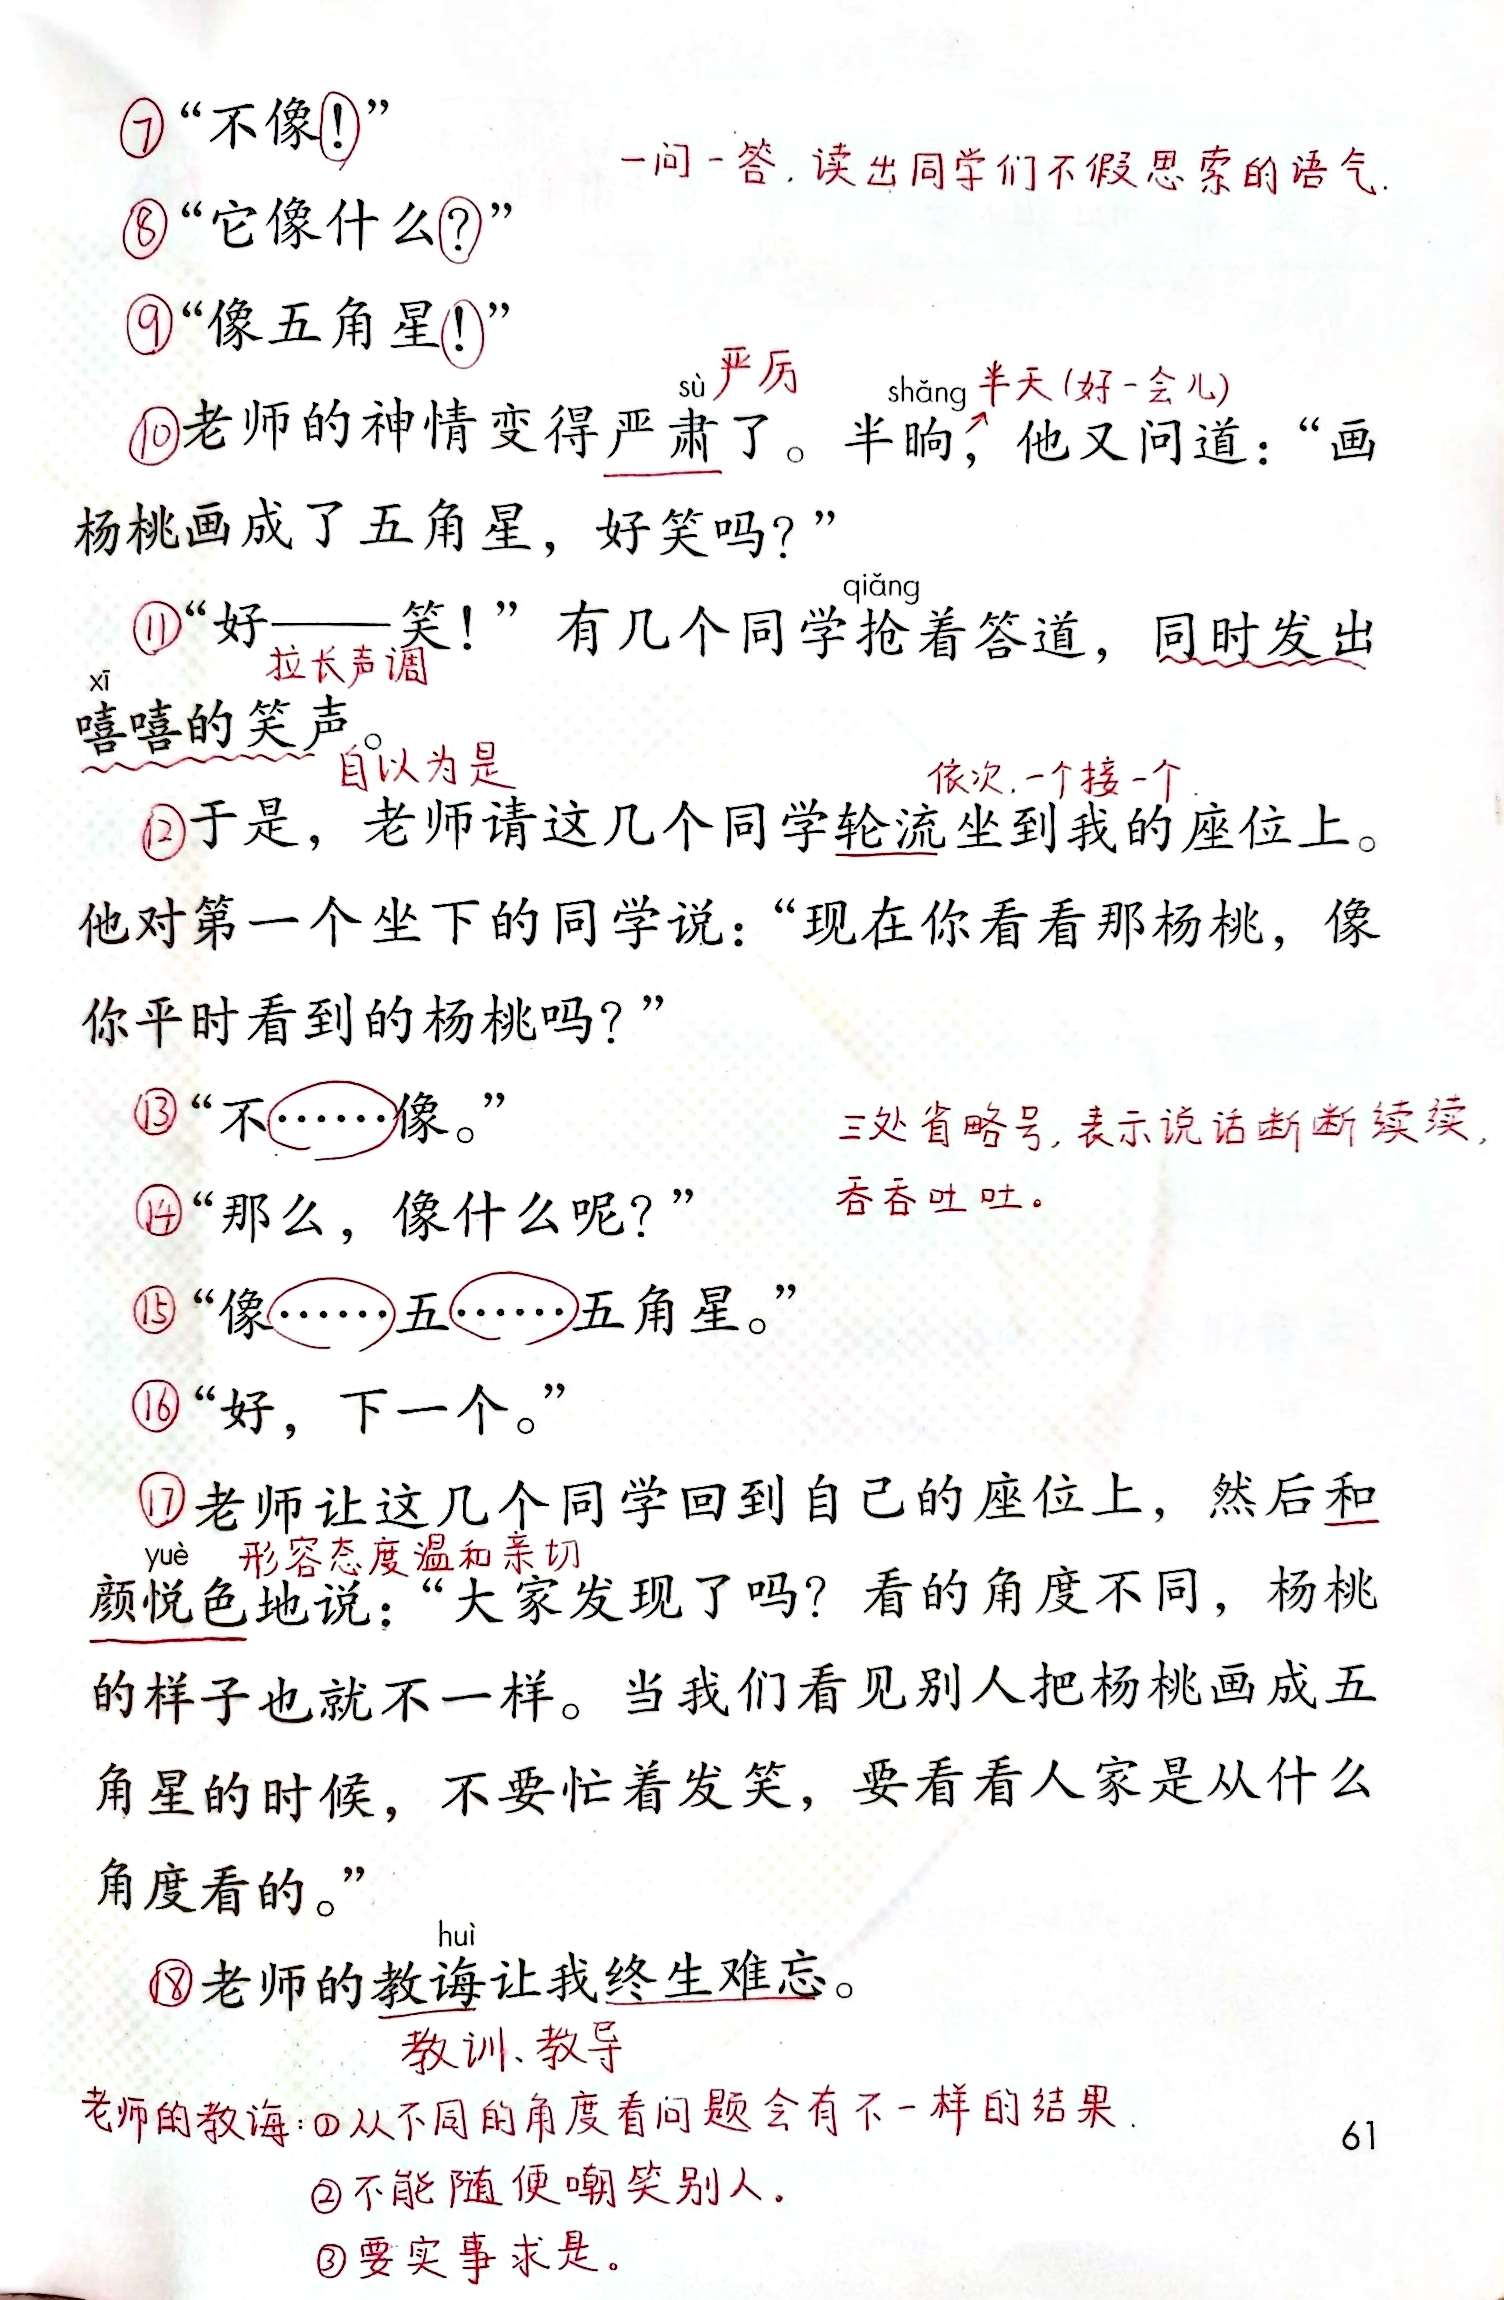 ⑦“不像！”
一问一答.读出同学们不假思索的语气.
⑧“它像什么？”
⑨“像五角星！”
sù 严厉 shǎng 半天(好一会儿)
⑩老师的神情变得严肃了。半晌，他又问道：“画
杨桃画成了五角星，好笑吗？”
qiǎng
⑪“好——笑！”有几个同学抢着答道，同时发出
xī 拉长声调
嘻嘻的笑声。
自以为是 依次.一个接一个.
⑫于是，老师请这几个同学轮流坐到我的座位上。
他对第一个坐下的同学说：“现在你看看那杨桃，像
你平时看到的杨桃吗？”
⑬“不……像。”
三处省略号,表示说话断断续续,
吞吞吐吐。
⑭“那么，像什么呢？”
⑮“像……五……五角星。”
⑯“好，下一个。”
⑰老师让这几个同学回到自己的座位上，然后和
yuè 形容态度温和亲切
颜悦色地说：“大家发现了吗？看的角度不同，杨桃
的样子也就不一样。当我们看见别人把杨桃画成五
角星的时候，不要忙着发笑，要看看人家是从什么
角度看的。”
huì
⑱老师的教诲让我终生难忘。
教训、教导
老师的教诲:①从不同的角度看问题会有不一样的结果.
61
②不能随便嘲笑别人.
③要实事求是。